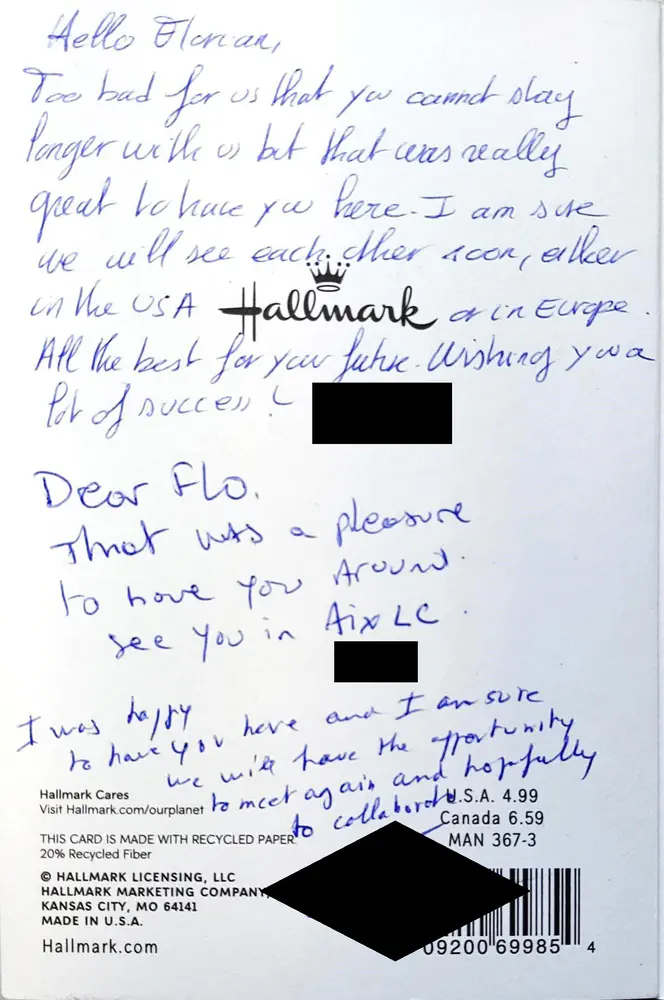 Hello Florian,
Too bad for us that you cannot stay
longer with us but that was really
great to have you here. I am sure
we will see each other soon, either
in the USA Hallmark or in Europe.
All the best for your future. Wishing you a
lot of success!
Dear Flo.
That was a pleasure
to have you Around.
see you in Aix LC.
I was happy
to have you here and I am sure
we will have the opportunity
to meet again and hopefully
to collaborate
Hallmark Cares
Visit Hallmark.com/ourplanet
THIS CARD IS MADE WITH RECYCLED PAPER.
20% Recycled Fiber
© HALLMARK LICENSING, LLC
HALLMARK MARKETING COMPANY,
KANSAS CITY, MO 64141
MADE IN U.S.A.
Hallmark.com
U.S.A. 4.99
Canada 6.59
MAN 367-3
09200 69985 4